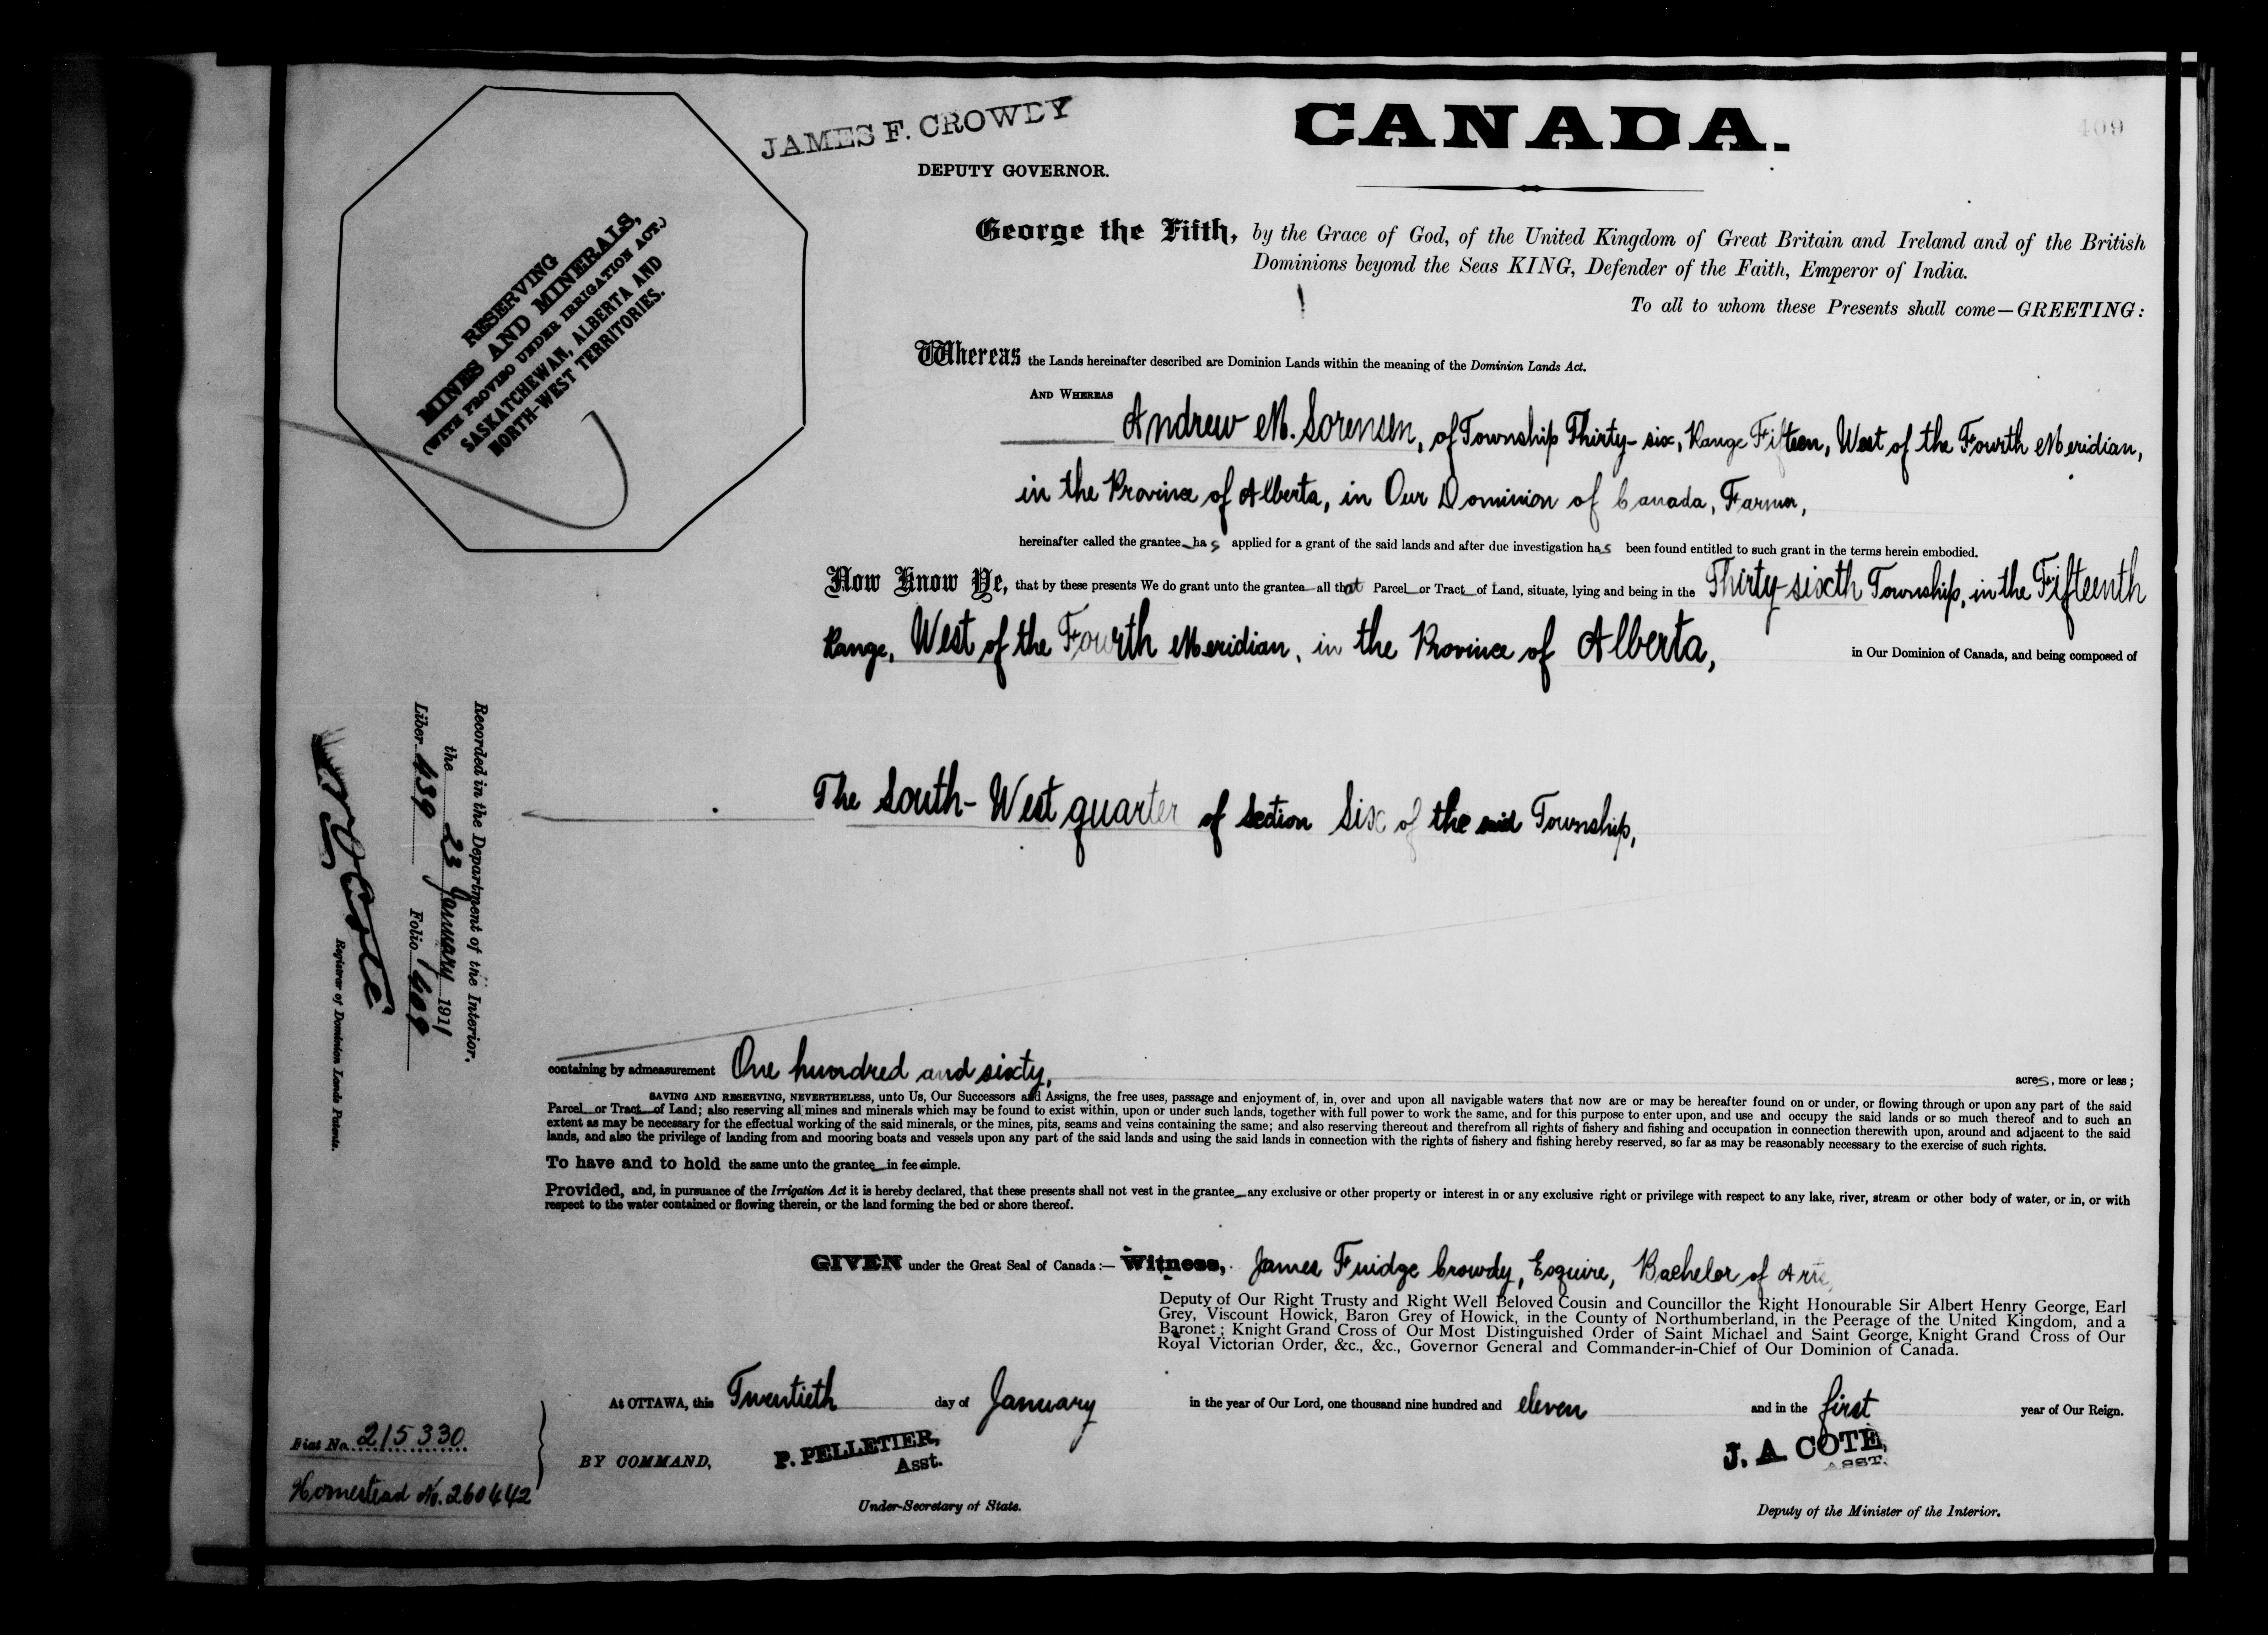 JAMES F. CROWDY
DEPUTY GOVERNOR.
CANADA.
409
RESERVING
MINES AND MINERALS,
(WITH PROVISO UNDER IRRIGATION ACT.)
SASKATCHEWAN, ALBERTA AND
NORTH-WEST TERRITORIES.
George the Fifth, by the Grace of God, of the United Kingdom of Great Britain and Ireland and of the British
Dominions beyond the Seas KING, Defender of the Faith, Emperor of India.
To all to whom these Presents shall come—GREETING:
Whereas the Lands hereinafter described are Dominion Lands within the meaning of the Dominion Lands Act.
AND WHEREAS
Andrew M. Sorensen, of Township Thirty-six, Range Fifteen, West of the Fourth Meridian,
in the Province of Alberta, in Our Dominion of Canada, Farmer,
hereinafter called the grantee has applied for a grant of the said lands and after due investigation has been found entitled to such grant in the terms herein embodied.
Now Know Ye, that by these presents We do grant unto the grantee all that Parcel or Tract of Land, situate, lying and being in the Thirty-sixth Township, in the Fifteenth
Range, West of the Fourth Meridian, in the Province of Alberta, in Our Dominion of Canada, and being composed of
The South-West quarter of Section Six of the said Township,
Recorded in the Department of the Interior,
the 23 January 1911
Liber 439 Folio 409
Registrar of Dominion Lands Patents.
containing by admeasurement One hundred and sixty, acres, more or less;
SAVING AND RESERVING, NEVERTHELESS, unto Us, Our Successors and Assigns, the free uses, passage and enjoyment of, in, over and upon all navigable waters that now are or may be hereafter found on or under, or flowing through or upon any part of the said
Parcel or Tract of Land; also reserving all mines and minerals which may be found to exist within, upon or under such lands, together with full power to work the same, and for this purpose to enter upon, and use and occupy the said lands or so much thereof and to such an
extent as may be necessary for the effectual working of the said minerals, or the mines, pits, seams and veins containing the same; and also reserving thereout and therefrom all rights of fishery and fishing and occupation in connection therewith upon, around and adjacent to the said
lands, and also the privilege of landing from and mooring boats and vessels upon any part of the said lands and using the said lands in connection with the rights of fishery and fishing hereby reserved, so far as may be reasonably necessary to the exercise of such rights.
To have and to hold the same unto the grantee in fee simple.
Provided, and, in pursuance of the Irrigation Act it is hereby declared, that these presents shall not vest in the grantee any exclusive or other property or interest in or any exclusive right or privilege with respect to any lake, river, stream or other body of water, or in, or with
respect to the water contained or flowing therein, or the land forming the bed or shore thereof.
GIVEN under the Great Seal of Canada:— Witness, James Fuidge Crowdy, Esquire, Bachelor of Arts,
Deputy of Our Right Trusty and Right Well Beloved Cousin and Councillor the Right Honourable Sir Albert Henry George, Earl
Grey, Viscount Howick, Baron Grey of Howick, in the County of Northumberland, in the Peerage of the United Kingdom, and a
Baronet; Knight Grand Cross of Our Most Distinguished Order of Saint Michael and Saint George, Knight Grand Cross of Our
Royal Victorian Order, &c., &c., Governor General and Commander-in-Chief of Our Dominion of Canada.
At OTTAWA, this Twentieth day of January in the year of Our Lord, one thousand nine hundred and eleven and in the first year of Our Reign.
Fiat No. 215330
Homestead No. 260442
BY COMMAND,
P. PELLETIER,
Asst.
Under-Secretary of State.
J. A. COTE,
ASST.
Deputy of the Minister of the Interior.